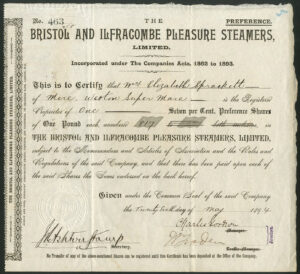 No. 463
THE
PREFERENCE.
BRISTOL AND ILFRACOMBE PLEASURE STEAMERS,
LIMITED.
Incorporated under The Companies Acts, 1862 to 1893.
This is to Certify that Mrs Elizabeth Sprackett
of Mere, Weston Super Mare is the Registered
Proprietor of One Seven per Cent. Preference Shares
of One Pound each numbered 817 both inclusive, in
THE BRISTOL AND ILFRACOMBE PLEASURE STEAMERS, LIMITED,
subject to the Memorandum and Articles of Association and the Rules and
Regulations of the said Company, and that there has been paid upon each of
the said Shares the Sums endorsed on the back hereof.
Given under the Common Seal of the said Company
the day of May 1894
Secretary.
No Transfer of any of the above-mentioned Shares can be registered until this Certificate has been deposited at the Office of the Company.